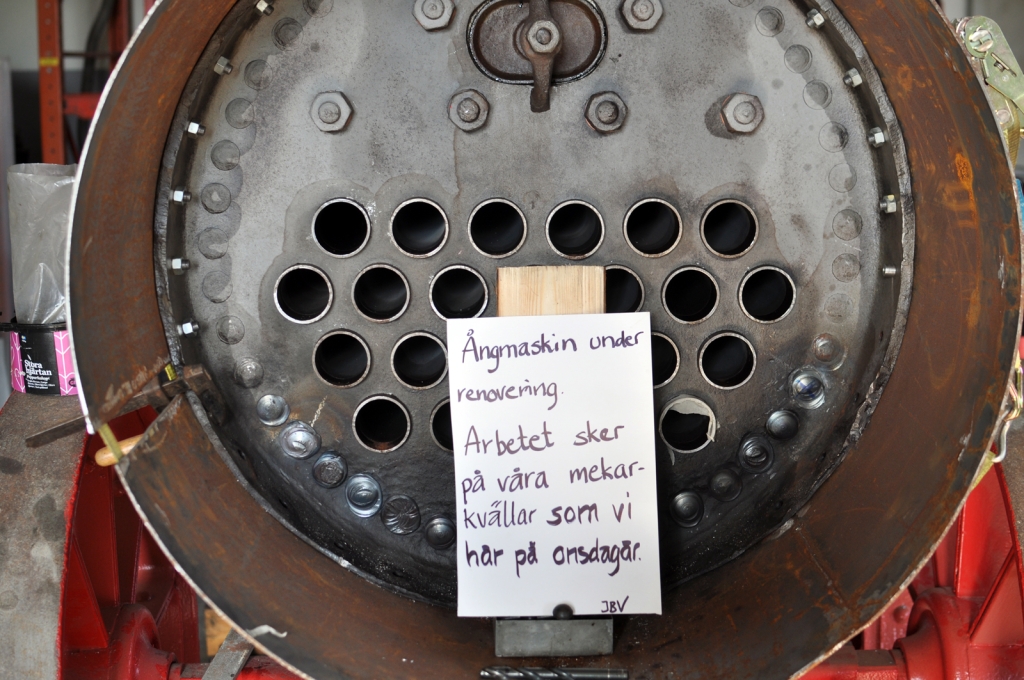 Ångmaskin under
renovering.
Arbetet sker
på våra mekar-
kvällar som vi
har på onsdagar.
JBV